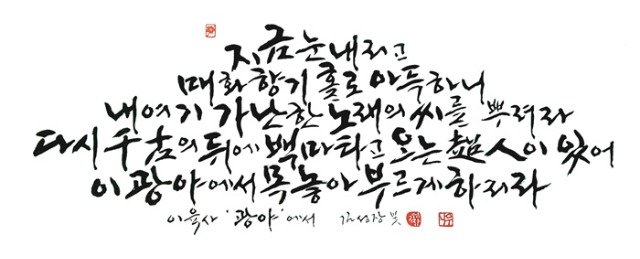 지금 눈 내리고
매화향기 홀로 아득하니
내 여기 가난한 노래의 씨를 뿌려라
다시 千古의 뒤에 백마 타고 오는 超人이 있어
이 광야에서 목놓아 부르게 하리라
이육사 '광야'에서 김성장 빛